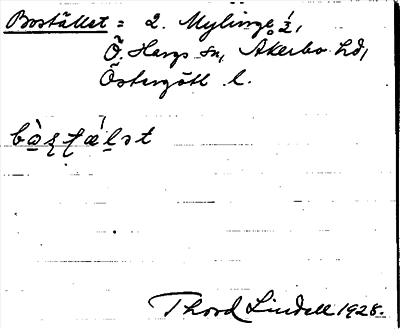 Bostället = 2. Mylinge ½,
Ö. Hargs sn, Åkerbo hd,
Östergötl. l.
Thord Lindell 1928.